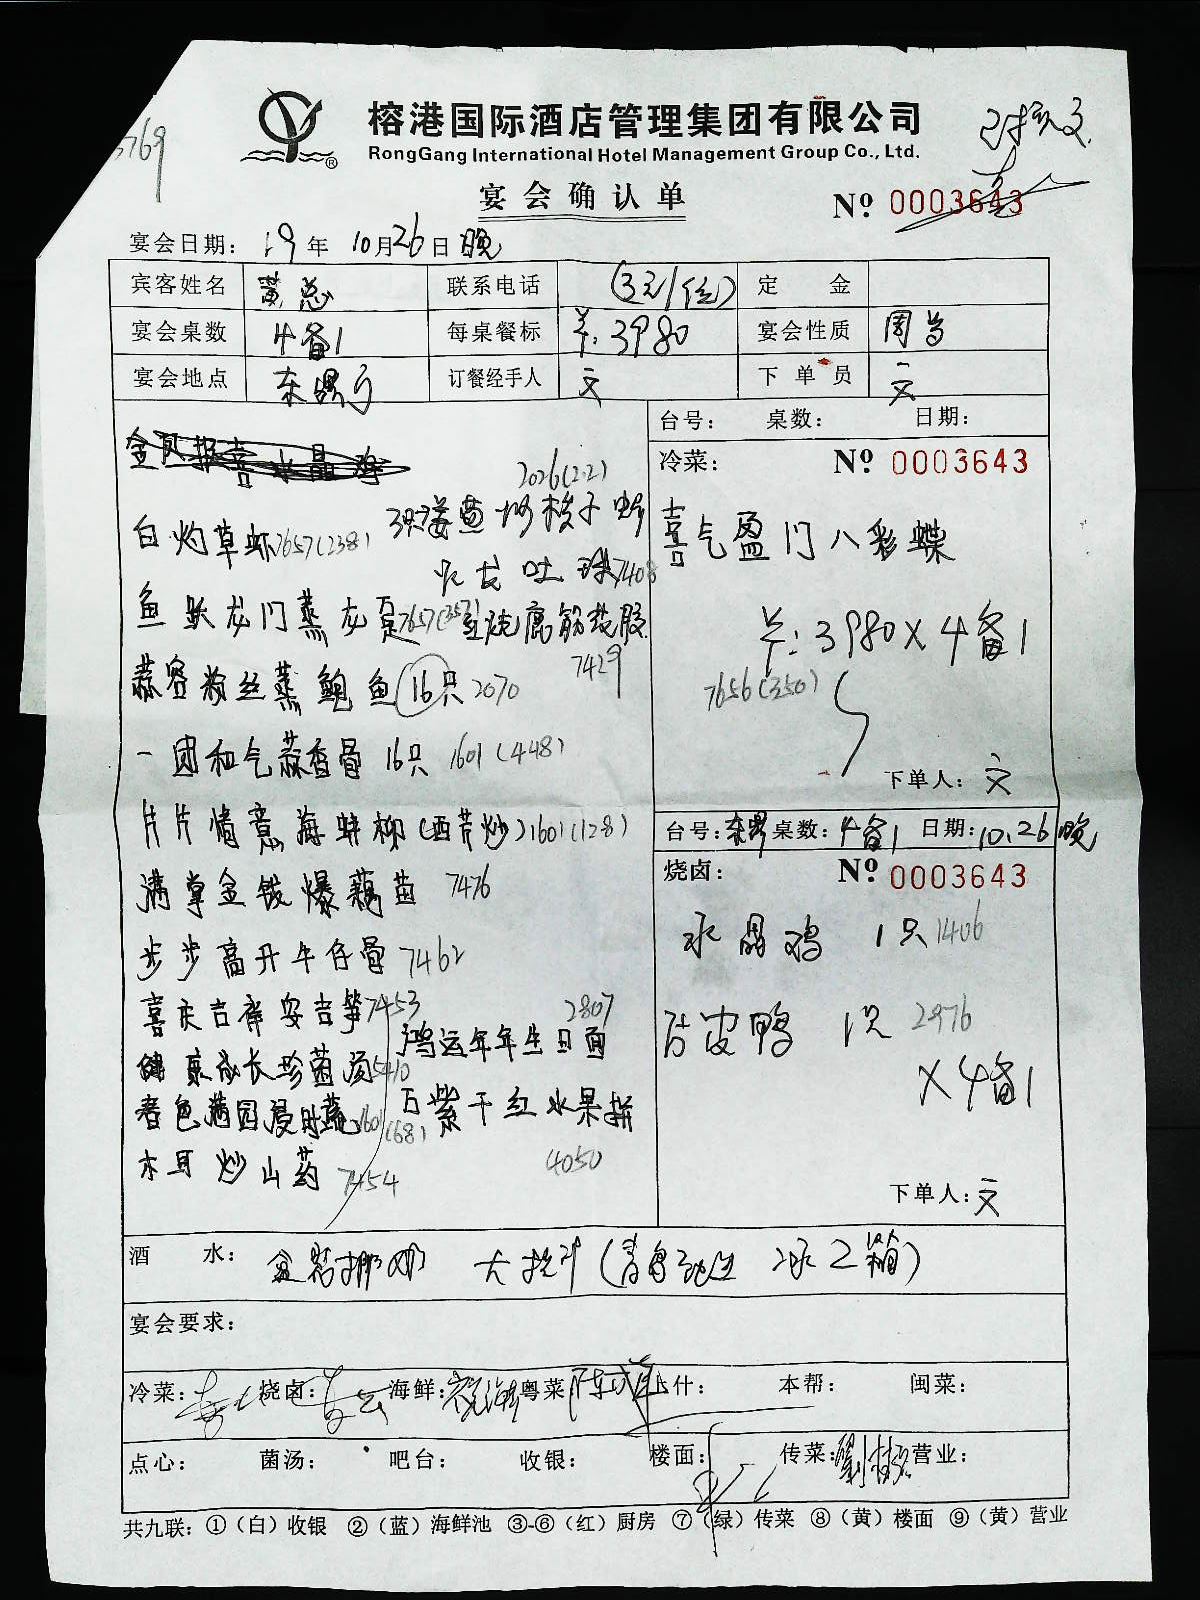 榕港国际酒店管理集团有限公司
RongGang International Hotel Management Group Co., Ltd.
宴会确认单
№ 0003643
宴会日期: 19年 10月26日晚
宾客姓名 黄总 联系电话 (3元/位) 定金
宴会桌数 4备1 每桌餐标 羊: 3980 宴会性质 周岁
宴会地点 订餐经手人 文 下单员 文
台号: 桌数: 日期:
冷菜: № 0003643
2026(2.2)
白灼草虾 7657(238)
吐珠 7408
鱼跃龙门蒸龙趸 7657(357)
7429
蒜蓉粉丝蒸鲍鱼 16只 2070
一团和气蒜香骨 16只 1601(448)
片片情意海蚌柳(西芹炒) 1601(128)
满掌金钱爆藕苗 7476
步步高升牛仔骨 7462
喜庆吉祥安吉笋 7453
健康成长珍菌汤 5410
春色满园浸时蔬 1601(68)
木耳炒山药 7454
2807
鸿运年年生日面
万紫千红水果拼
4050
喜气盈门八彩蝶
羊: 3980×4备1
7656(350)
下单人: 文
台号: 桌数: 4备1 日期: 10.26晚
烧卤: № 0003643
水晶鸡 1只 1406
1只 2976
×4备1
下单人: 文
酒水: (青岛 冰2箱)
宴会要求:
冷菜: 烧卤: 海鲜: 粤菜 上什: 本帮: 闽菜:
点心: 菌汤: 吧台: 收银: 楼面: 传菜: 营业:
共九联: ①(白)收银 ②(蓝)海鲜池 ③-⑥(红)厨房 ⑦(绿)传菜 ⑧(黄)楼面 ⑨(黄)营业